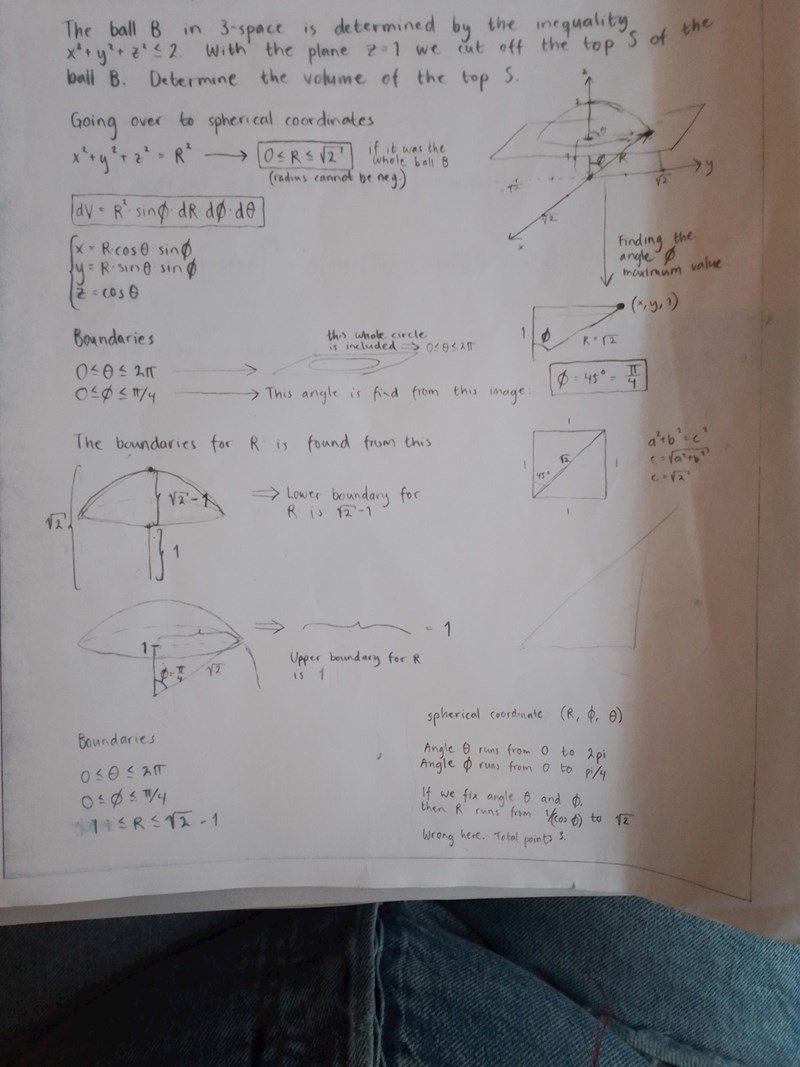 The ball B in 3-space is determined by the inequality
x² + y² + z² ≤ 2. With the plane z = 1 we cut off the top S of the
ball B. Determine the volume of the top S.
Going over to spherical coordinates
x² + y² + z² = R² → 0 ≤ R ≤ √2 if it was the
whole ball B
(radius cannot be neg.)
dV = R² · sinφ · dR · dφ · dθ
x = R·cosθ · sinφ
y = R·sinθ · sinφ
z = cosθ
z
φ
R
y
√2
√2
x
Finding the
angle φ
maximum value
1
φ
R = √2
(x, y, 1)
φ = 45° = π/4
Boundaries
0 ≤ θ ≤ 2π →
this whole circle
is included ⇒ 0≤θ≤2π
0 ≤ φ ≤ π/4 → This angle is find from this image:
1
1
√2
1
45°
1
a² + b² = c²
c = √a²+b²
c = √2
The boundaries for R is found from this
√2
√2 - 1
1
⇒ Lower boundary for
R is √2 - 1
1
φ = π/4
√2
⇒ = 1
Upper boundary for R
is 1
Boundaries
0 ≤ θ ≤ 2π
0 ≤ φ ≤ π/4
1 ≤ R ≤ √2 - 1
spherical coordinate (R, φ, θ)
Angle θ runs from 0 to 2pi
Angle φ runs from 0 to pi/4
If we fix angle θ and φ,
then R runs from 1/(cos φ) to √2
Wrong here. Total points 3.